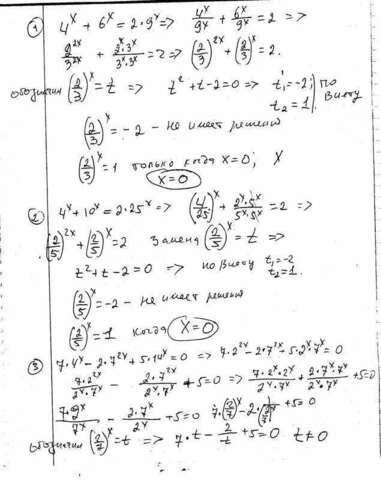 ① 4^x + 6^x = 2·9^x => 4^x/9^x + 6^x/9^x = 2 =>
2^2x/3^2x + 2^x·3^x/3^x·3^x = 2 => (2/3)^2x + (2/3)^x = 2.
обозначим (2/3)^x = t => t² + t - 2 = 0 => t₁ = -2; t₂ = 1 } по Виету
(2/3)^x = -2 - не имеет решений
(2/3)^x = 1 только когда x = 0; x
x = 0
② 4^x + 10^x = 2·25^x => (4/25)^x + 2^x·5^x/5^x·5^x = 2 =>
(2/5)^2x + (2/5)^x = 2 Замена (2/5)^x = t =>
t² + t - 2 = 0 => по Виету t₁ = -2 t₂ = 1.
(2/5)^x = -2 - не имеет решений
(2/5)^x = 1 когда x = 0
③ 7·4^x - 2·7^2x + 5·14^x = 0 => 7·2^2x - 2·7^2x + 5·2^x·7^x = 0
7·2^2x/2^x·7^x - 2·7^2x/2^x·7^x + 5 = 0 => 7·2^x·2^x/2^x·7^x + 2·7^x·7^x/2^x·7^x + 5 = 0
7·2^x/7^x - 2·7^x/2^x + 5 = 0 7·(2/7)^x - 2·1/(2/7)^x + 5 = 0
обозначим (2/7)^x = t => 7·t - 2/t + 5 = 0 t ≠ 0